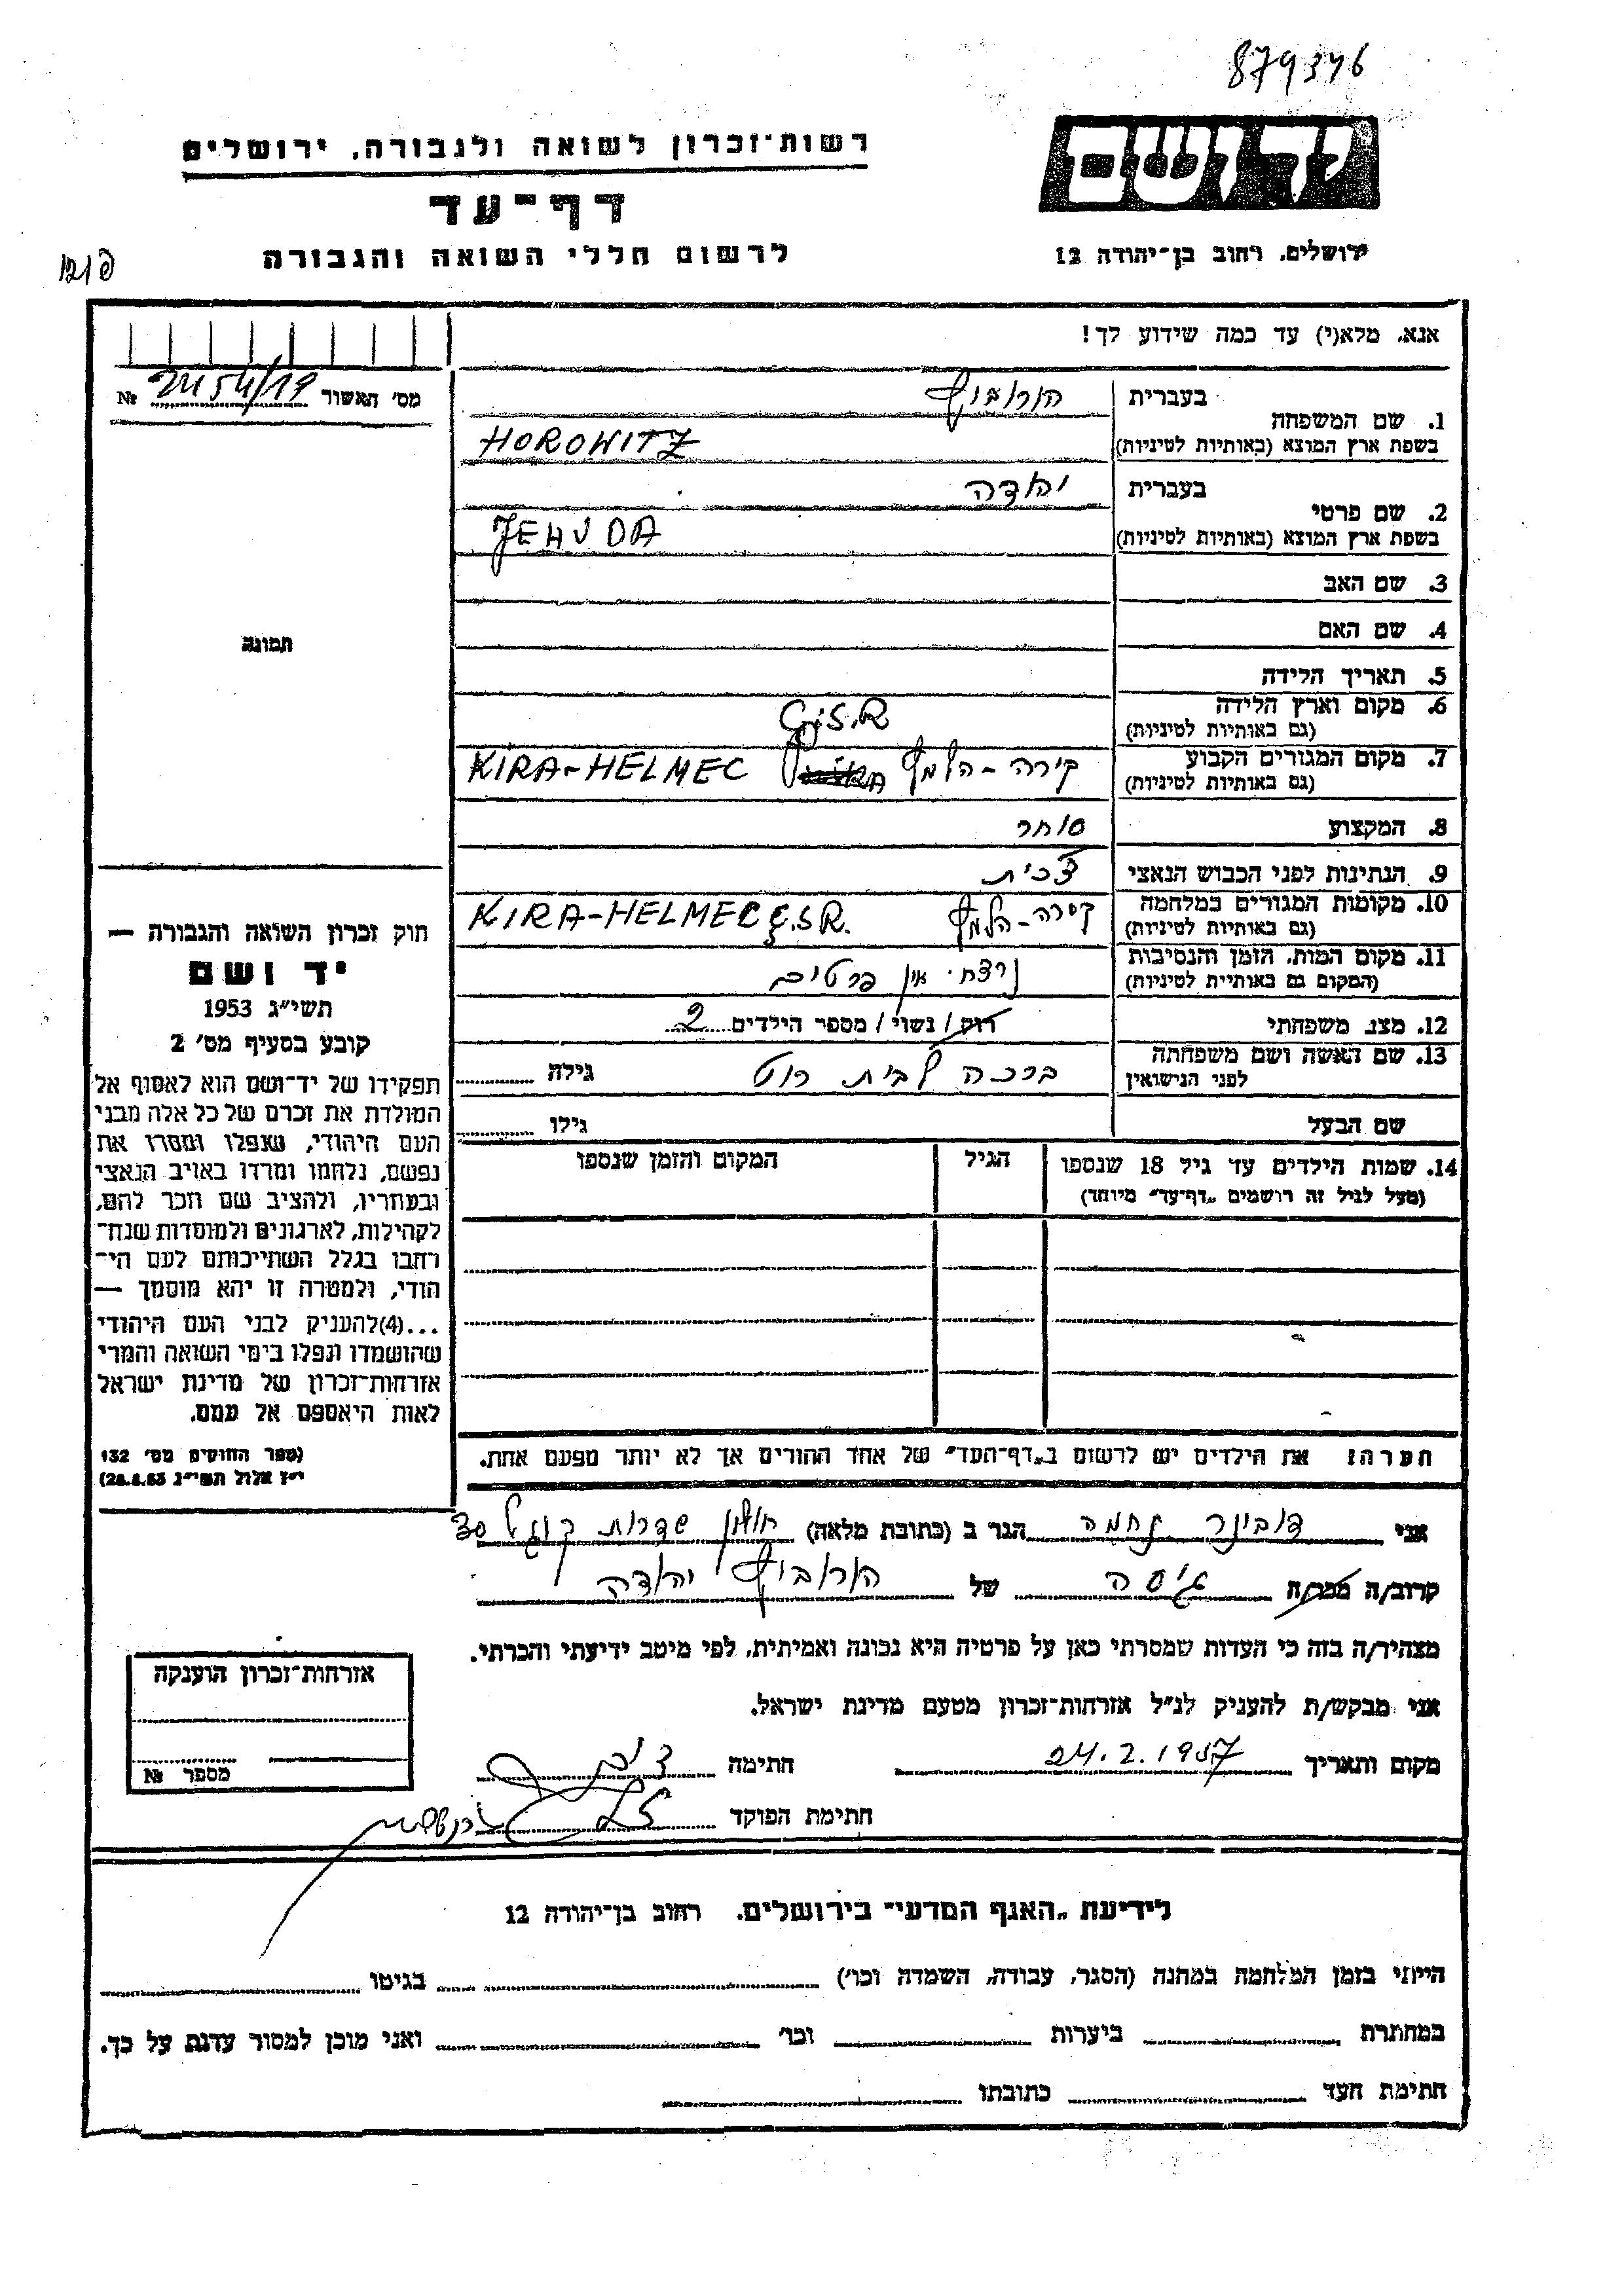 879346
רשות־זכרון לשואה ולגבורה, ירושלים
יד ושם
דף־עד
לרשום חללי השואה והגבורה
ירושלים, רחוב בן־יהודה 12
אנא, מלא(י) עד כמה שידוע לך!
מס׳ האשור 2454/19 №
1. שם המשפחה
בעברית הורוביץ
בשפת ארץ המוצא (באותיות לטיניות) HOROWITZ
2. שם פרטי
בעברית יהודה
בשפת ארץ המוצא (באותיות לטיניות) JEHUDA
3. שם האב
4. שם האם
תמונה
5. תאריך הלידה
6. מקום וארץ הלידה
(גם באותיות לטיניות)
Č.S.R
7. מקום המגורים הקבוע
(גם באותיות לטיניות)
קירה-הלמץ KIRA-HELMEC
8. המקצוע סוחר
9. הנתינות לפני הכבוש הנאצי צ׳כית
10. מקומות המגורים במלחמה
(גם באותיות לטיניות)
קירה-הלמץ KIRA-HELMEC Č.S.R.
11. מקום המות, הזמן והנסיבות
(המקום גם באותיית לטיניות)
נרצח. אין פרטים
12. מצב משפחתי רוק/נשוי/ מספר הילדים 2
13. שם האשה ושם משפחתה
לפני הנישואין
ברכה לבית רוט גילה
שם הבעל גילו
14. שמות הילדים עד גיל 18 שנספו הגיל המקום והזמן שנספו
(מעל לגיל זה רושמים „דף־עד” מיוחד)
הערה: את הילדים יש לרשום ב„דף־העד” של אחד ההורים אך לא יותר מפעם אחת.
חוק זכרון השואה והגבורה —
יד ושם
תשי״ג 1953
קובע בסעיף מס׳ 2
תפקידו של יד־ושם הוא לאסוף אל
המולדת את זכרם של כל אלה מבני
העם היהודי, שנפלו ומסרו את
נפשם, נלחמו ומרדו באויב הנאצי
ובעוזריו, ולהציב שם וזכר להם,
לקהילות, לארגונים ולמוסדות שנח־
רחבו בגלל השתייכותם לעם הי־
הודי, ולמטרה זו יהא מוסמך —
...(4)להעניק לבני העם היהודי
שהושמדו ונפלו בימי השואה והמרי
אזרחות־זכרון של מדינת ישראל
לאות היאספם אל עמם.
(ספר החוקים מס׳ 132
י״ז אלול תשי״ג 28.8.53)
אני דובינר נחמה הגר ב (כתובת מלאה) חולון שדרות קוגל
קרוב/ה מכר/ה גיסה של הורוביץ יהודה
מצהיר/ה בזה כי העדות שמסרתי כאן על פרטיה היא נכונה ואמיתית, לפי מיטב ידיעתי והכרתי.
אני מבקש/ת להעניק לנ״ל אזרחות־זכרון מטעם מדינת ישראל.
מקום ותאריך 24.2.1957 חתימה
חתימת הפוקד
אזרחות־זכרון הוענקה
מספר №
לידיעת „האגף המדעי” בירושלים, רחוב בן־יהודה 12
הייתי בזמן המלחמה במחנה (הסגר, עבודה, השמדה וכו׳) בגיטו
במחתרת ביערות וכו׳ ואני מוכן למסור עדות על כך.
חתימת העד כתובתו